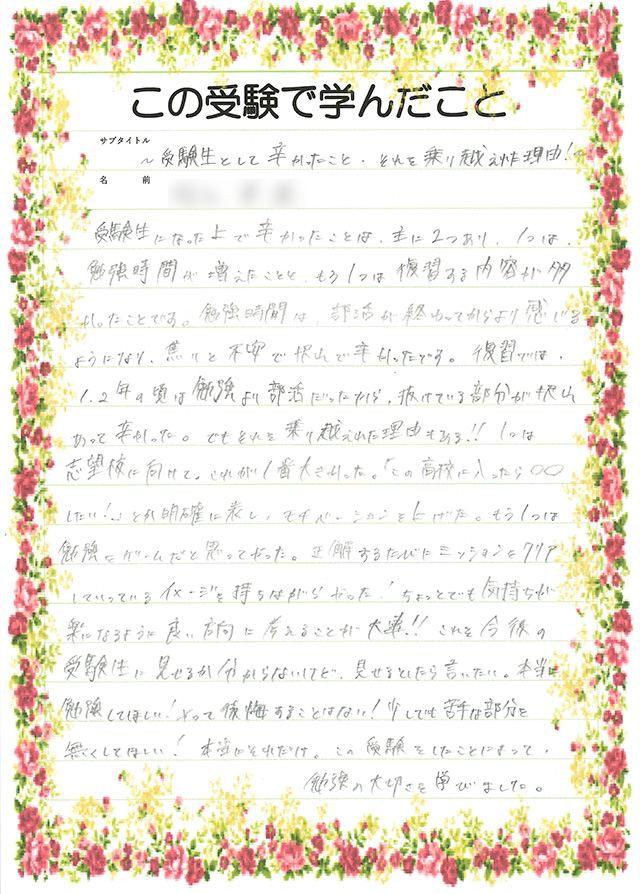 この受験で学んだこと
サブタイトル
~受験生として辛かったこと・それを乗り越えれた理由!~
名前
受験生になった上で辛かったことは、主に2つあり、1つは、
勉強時間が増えたことと、もう1つは復習する内容が多
かったことです。勉強時間は、部活が終わってからより感じる
ようになり、焦りと不安で沢山で辛かったです。復習では、
1.2年の頃は勉強より部活だったから、抜けている部分が沢山
あって辛かった。でもそれを乗り越えれた理由もある!!1つは
志望校に向けて。これが1番大きかった。「この高校に入ったら○○
したい!」とか明確に表し、モチベーションを上げた。もう1つは
勉強をゲームだと思ってやった。正解するたびにミッションをクリア
していっているイメージを持ちながらやった!ちょっとでも気持ちが
楽になるように良い方向に考えることが大事!!これを今後の
受験生に見せるか分からないけど、見せるとしたら言いたい。本当に
勉強してほしい!やって後悔することはない!少しでも苦手な部分を
無くしてほしい!本当にそれだけ。この受験をしたことによって、
勉強の大切さを学びました。